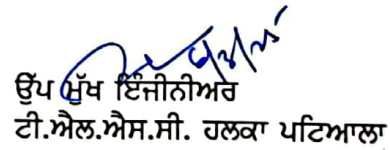 ਉੱਪ ਮੁੱਖ ਇੰਜੀਨੀਅਰ
ਟੀ.ਐਲ.ਐਸ.ਸੀ. ਹਲਕਾ ਪਟਿਆਲਾ